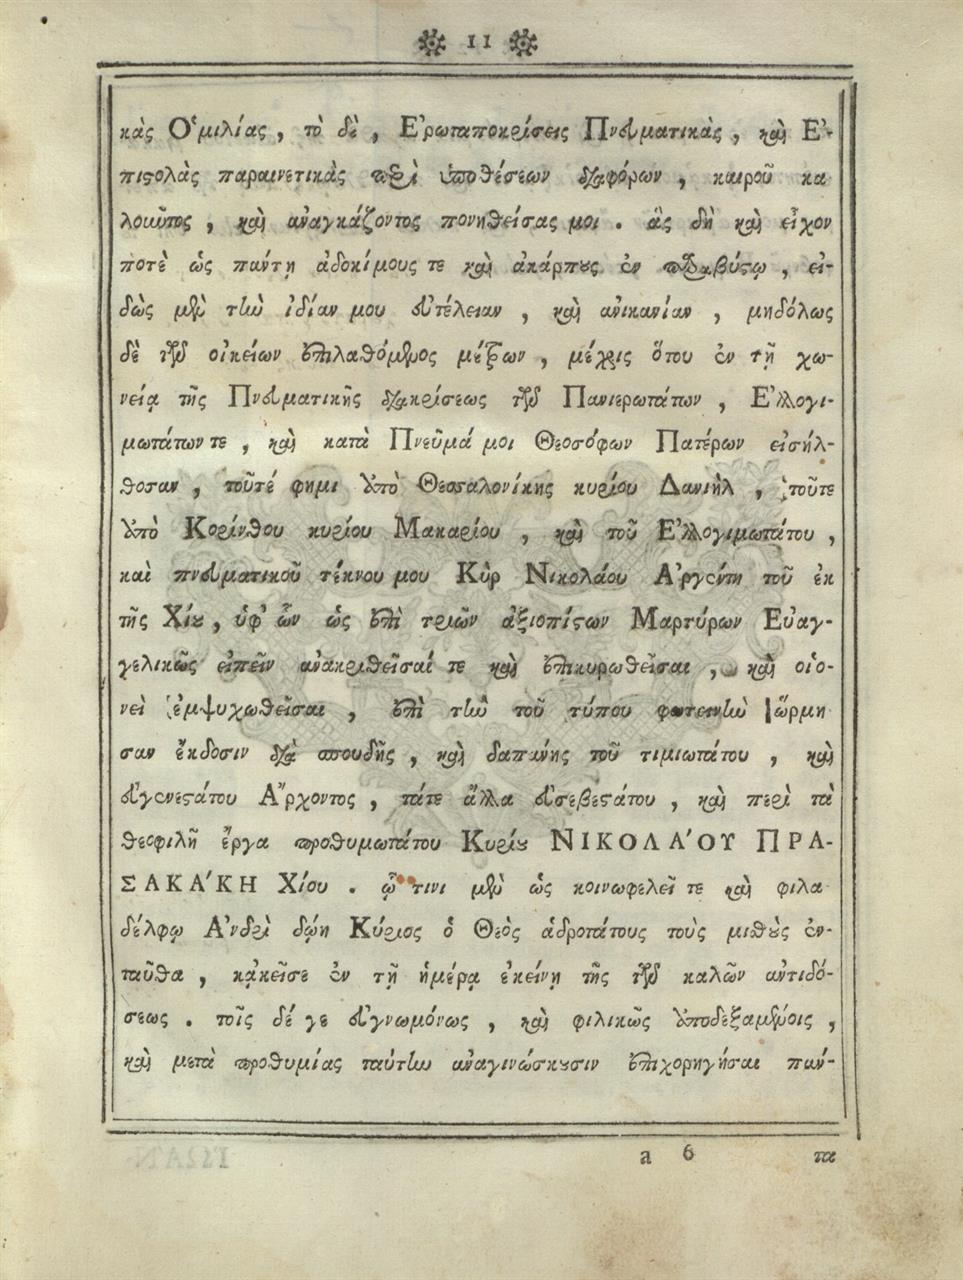 11
κὰς Ὁμιλίας, τὸ δὲ, Ἐρωταποκρίσεις Πνευματικὰς, καὶ Ἐ-
πιστολὰς παραινετικὰς περὶ ὑποθέσεων διαφόρων, καιροῦ κα
λοῦντος, καὶ ἀναγκάζοντος πονηθείσας μοι. ἃς δὴ καὶ εἶχον
ποτὲ ὡς πάντῃ ἀδοκίμους τε καὶ ἀκάρπους ἐν παραβύστῳ, εἰ-
δὼς μὲν τὴν ἰδίαν μου εὐτέλειαν, καὶ ἀνικανίαν, μηδόλως
δὲ τῶν οἰκείων ἐπιλαθόμενος μέτρων, μέχρις ὅτου ἐν τῇ χω-
νείᾳ τῆς Πνευματικῆς διακρίσεως τῶν Πανιερωτάτων, Ἐλλογι-
μωτάτων τε, καὶ κατὰ Πνεῦμά μοι Θεοσόφων Πατέρων εἰσήλ-
θοσαν, τοῦτέ φημι Ὑπὸ Θεσσαλονίκης κυρίου Δανιὴλ, τοῦτε
Ὑπὸ Κορίνθου κυρίου Μακαρίου, καὶ τοῦ Ἐλλογιμωτάτου,
καὶ πνευματικοῦ τέκνου μου Κὺρ Νικολάου Ἀργέντη τοῦ ἐκ
τῆς Χίου, ὑφ' ὧν ὡς ἐπὶ τριῶν ἀξιοπίστων Μαρτύρων Εὐαγ-
γελικῶς εἰπεῖν ἀνακριθεῖσαί τε καὶ ἐπικυρωθεῖσαι, καὶ οἱο-
νεὶ ἐμψυχωθεῖσαι, ἐπὶ τὴν τοῦ τύπου φωτεινὴν ὥρμη
σαν ἔκδοσιν διὰ σπουδῆς, καὶ δαπάνης τοῦ τιμιωτάτου, καὶ
εὐγενεστάτου Ἄρχοντος, τάτε ἄλλα εὐσεβεστάτου, καὶ περὶ τὰ
θεοφιλῆ ἔργα προθυμωτάτου Κυρίου ΝΙΚΟΛΑΌΥ ΠΡΑ-
ΣΑΚΆΚΗ Χίου. ᾧ τινι μὲν ὡς κοινωφελεῖ τε καὶ φιλα
δέλφῳ Ἀνδρὶ δῴη Κύριος ὁ Θεὸς ἁδροτάτους τοὺς μισθοὺς ἐν-
ταῦθα, κἀκεῖσε ἐν τῇ ἡμέρᾳ ἐκείνῃ τῆς τῶν καλῶν ἀντιδό-
σεως. τοῖς δέ γε εὐγνωμόνως, καὶ φιλικῶς Ὑποδεξαμένοις,
καὶ μετὰ προθυμίας ταύτην ἀναγινώσκουσιν ἐπιχορηγήσαι παν-
a 6 τα